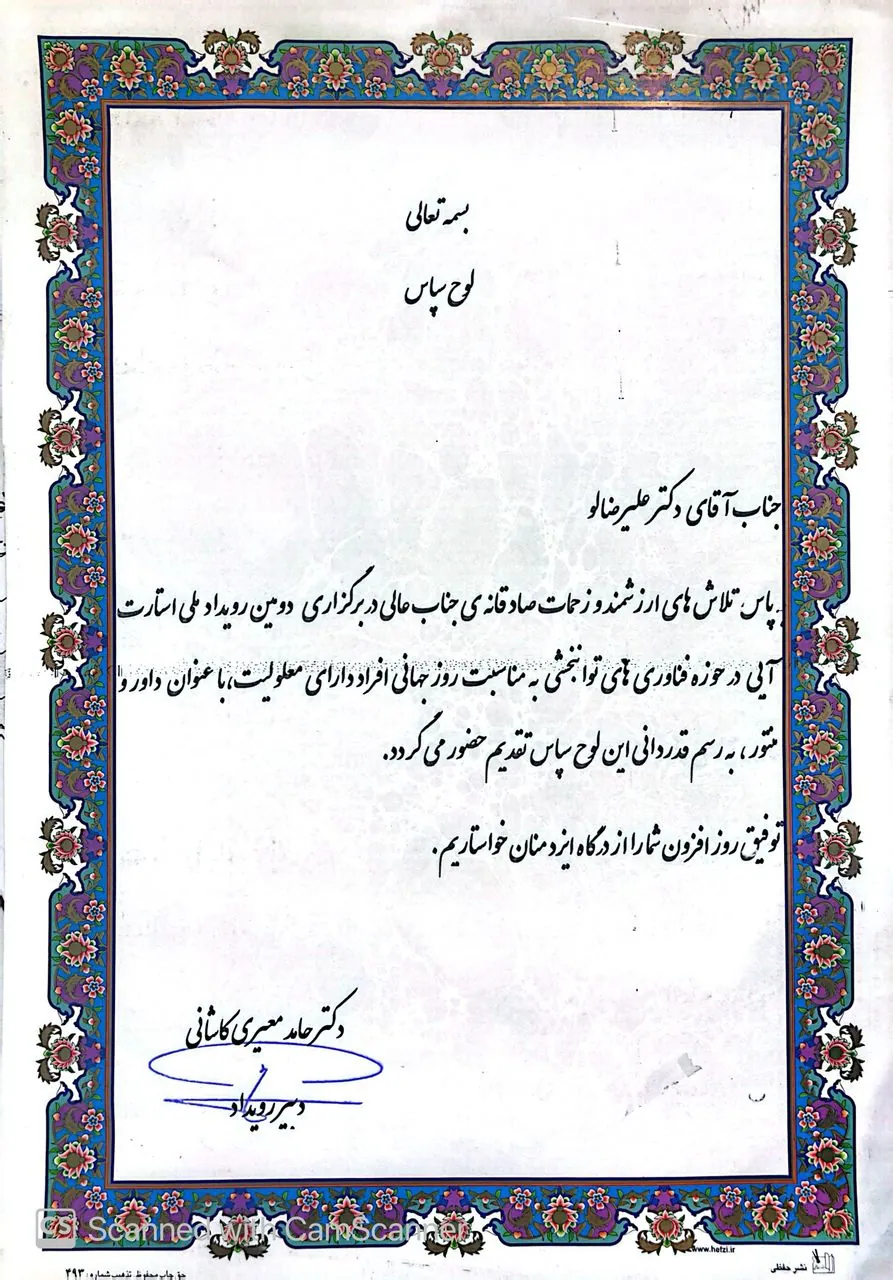 بسمه تعالی
لوح سپاس
جناب آقای دکتر علیرضالو
پاس تلاش های ارزشمند و زحمات صادقانه ی جناب عالی در برگزاری دومین رویداد ملی استارت
آپی در حوزه فناوری های توانبخشی به مناسبت روز جهانی افراد دارای معلولیت، با عنوان داور و
منتور، به رسم قدردانی این لوح سپاس تقدیم حضور می گردد.
توفیق روز افزون شما را از درگاه ایزد منان خواستاریم.
دکتر حامد معیری کاشانی
دبیر رویداد
CS Scanned with CamScanner
www.hefzi.ir
نشر حفظی
حق چاپ محفوظ تذهیب شماره: ۴۹۳